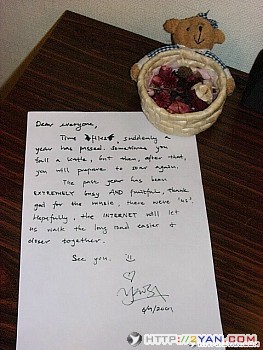 Dear everyone,
Time flies, suddenly a
year has passed. Sometimes you
fall a little, but then, after that,
you will prepare to soar again.
The past year has been
EXTREMELY busy AND fruitful, thank
god for the music, there were 'us'.
Hopefully, the INTERNET will let
us walk the long road easier &
closer together.
See you.
HTTP://2YAN.COM